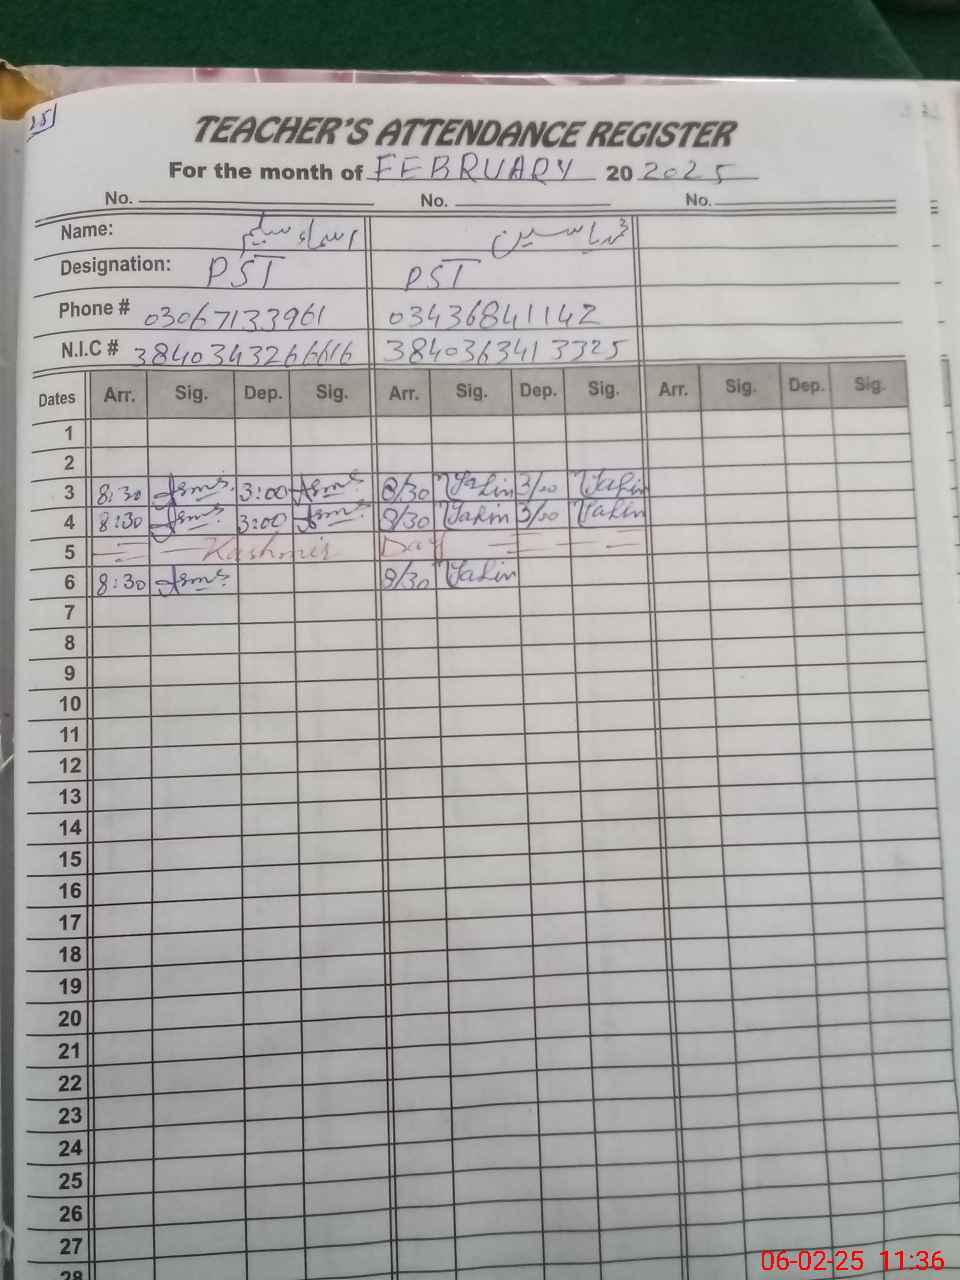 25
TEACHER'S ATTENDANCE REGISTER
For the month of FEBRUARY 20 2025
No. No. No.
Name: اسماء سلیم محمد یاسین
Designation: PST PST
Phone # 03067133961 03436841142
N.I.C # 3840343266616 3840363413325
Dates Arr. Sig. Dep. Sig. Arr. Sig. Dep. Sig. Arr. Sig. Dep. Sig.
1
2
3 8:30 3:00 8/30 Yasin 3/00 Yasin
4 8:30 3:00 8/30 Yasin 3/00 Yasin
5 Kashmir Day
6 8:30 8/30 Yasin
7
8
9
10
11
12
13
14
15
16
17
18
19
20
21
22
23
24
25
26
27
28
06-02-25 11:36